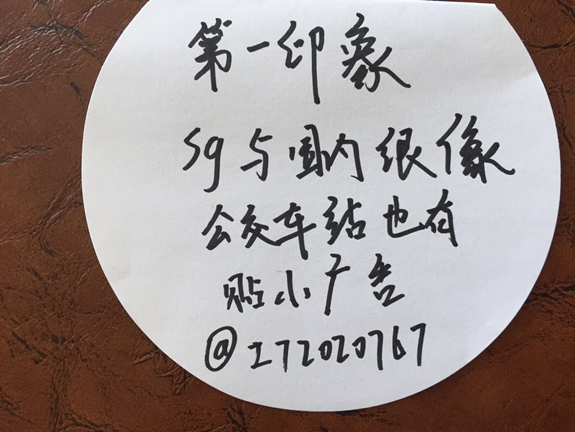 第一印象
sg与国内很像
公交车站也有
贴小广告
@I72020767